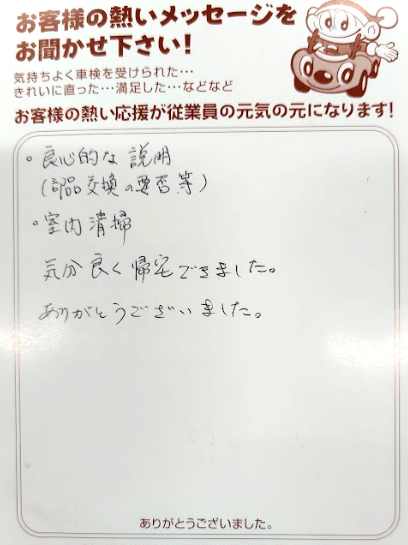 お客様の熱いメッセージを
お聞かせ下さい！
気持ちよく車検を受けられた…
きれいに直った…満足した…などなど
お客様の熱い応援が従業員の元気の元になります！
・良心的な説明
（部品交換の要否等）
・室内清掃
気分良く帰宅できました。
ありがとうございました。
ありがとうございました。